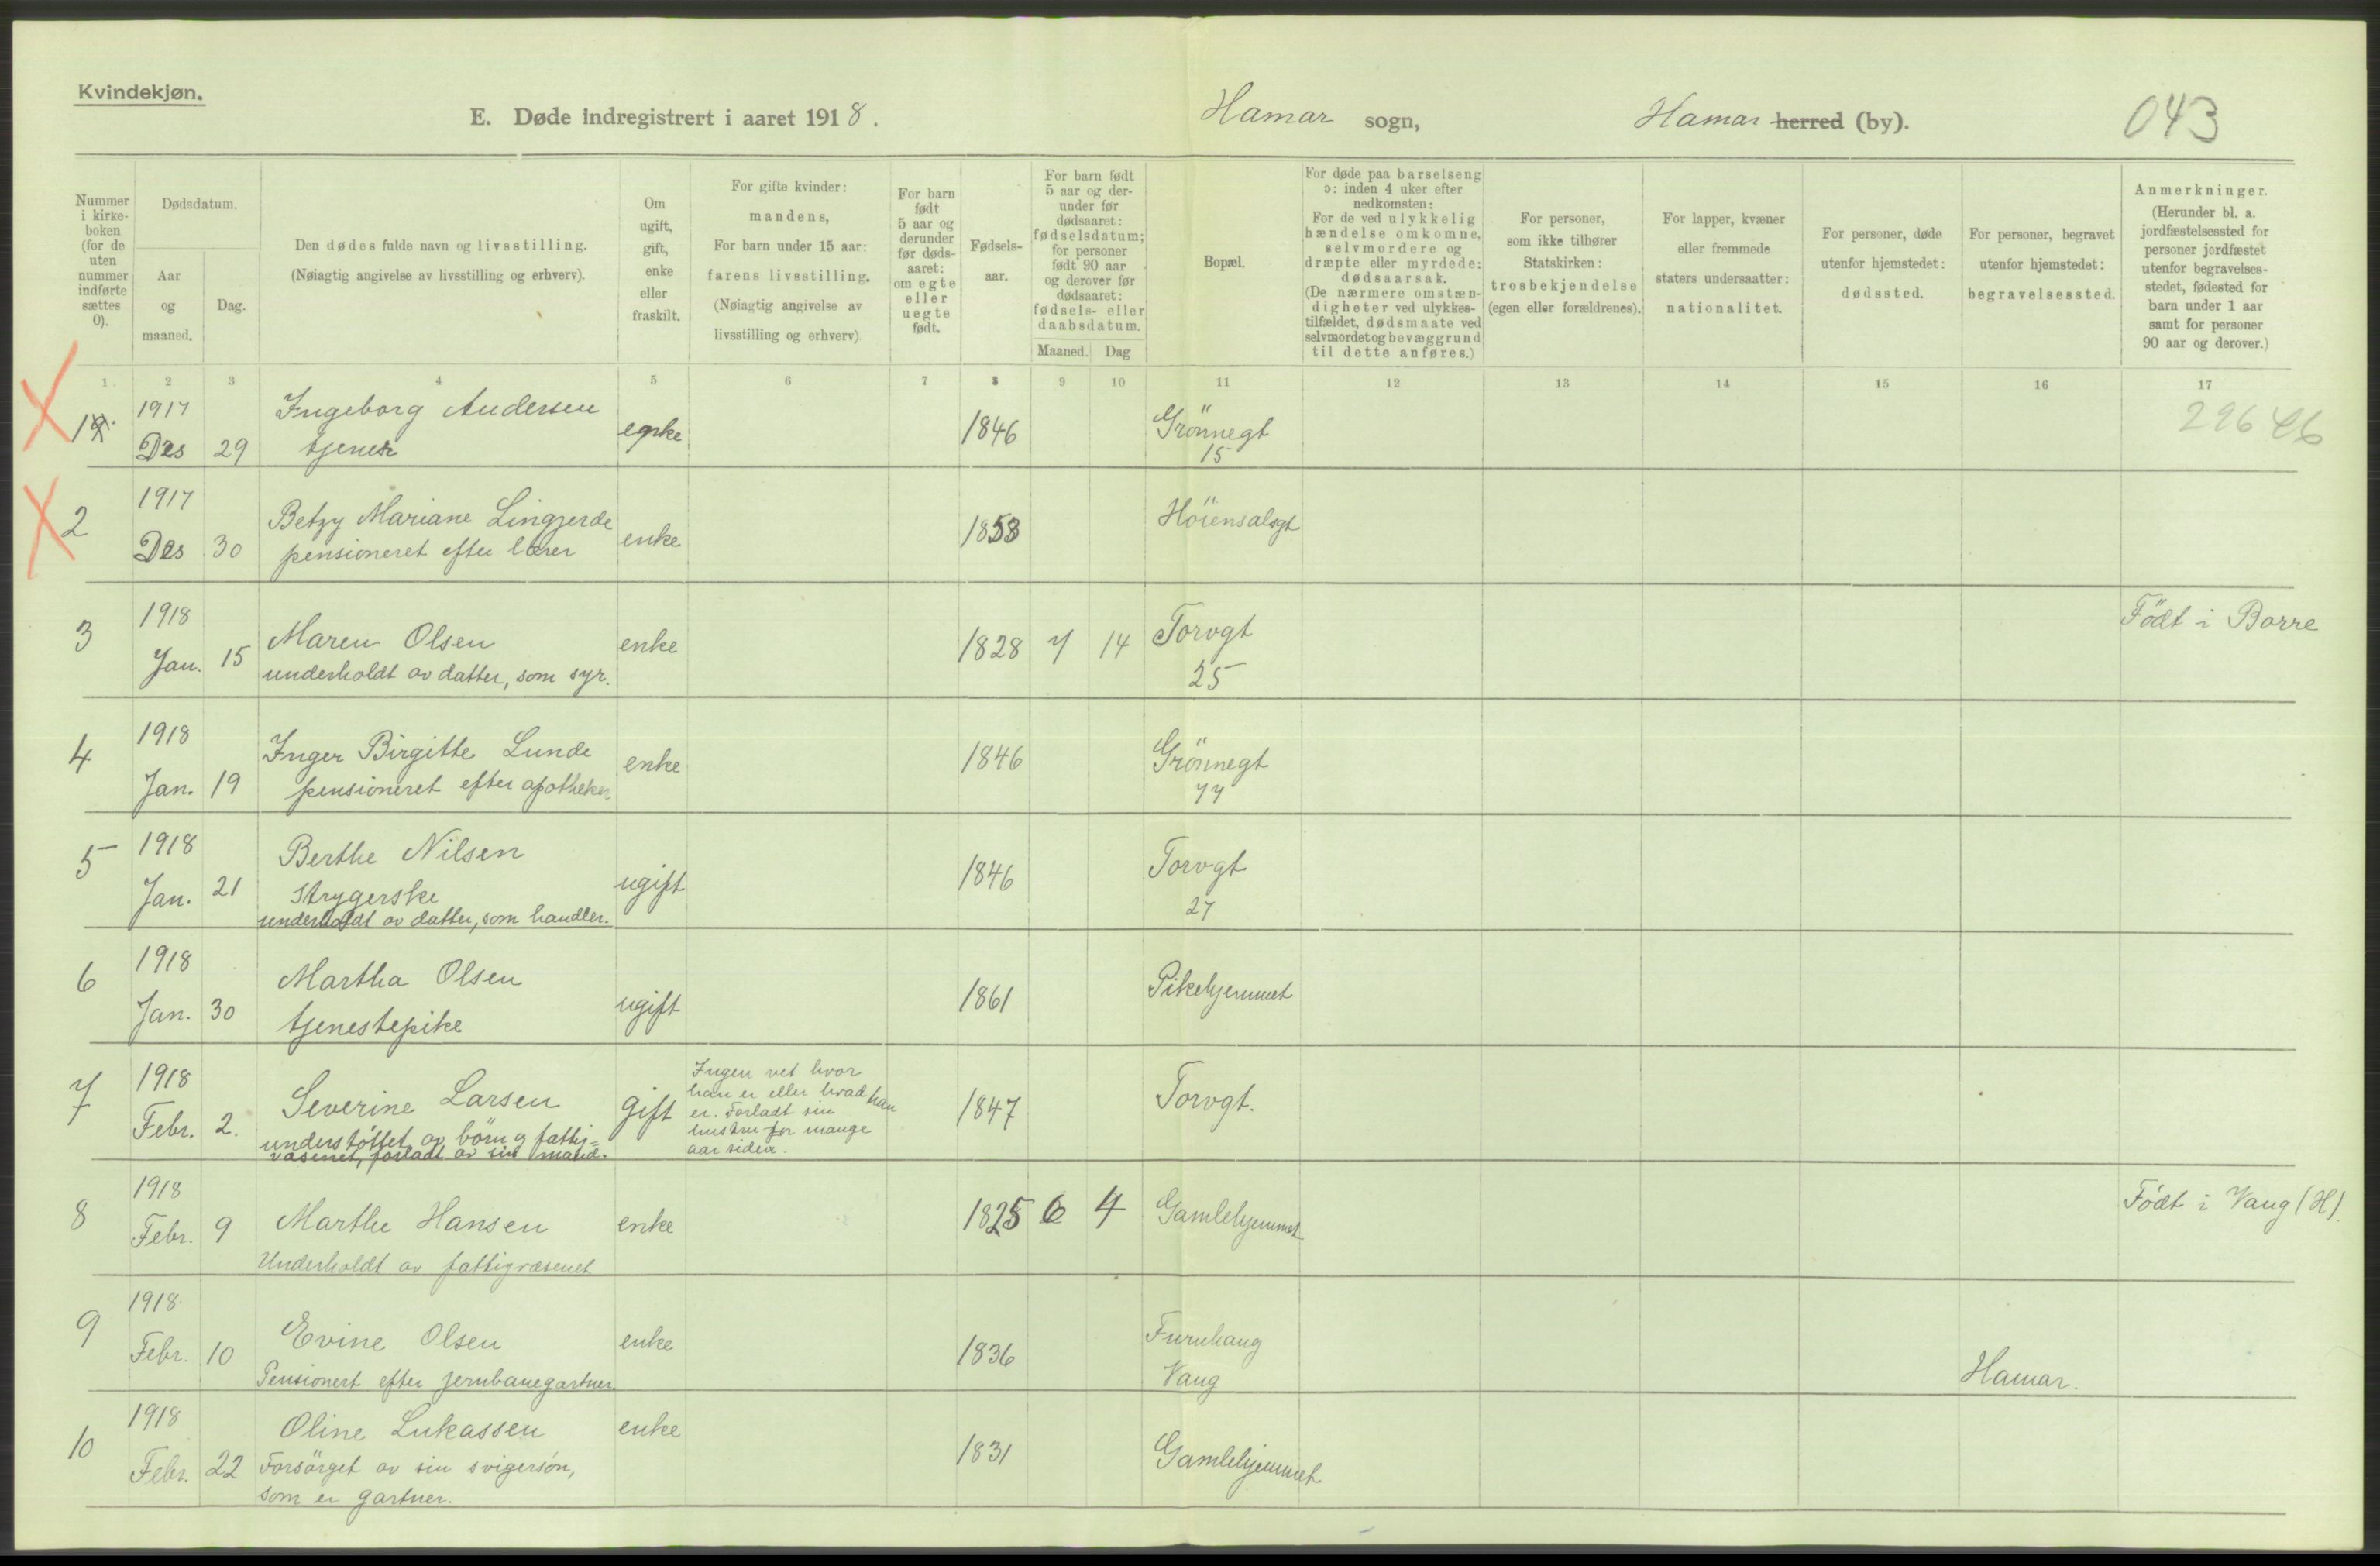 Kvindekjøn.
E. Døde indregistrert i aaret 1918.
Hamar sogn,
Hamar herred (by).
043
Nummer i kirkeboken (for de uten nummer indførte sættes 0).
Dødsdatum.
Aar og maaned.
Dag.
Den dødes fulde navn og livsstilling.
(Nøiagtig angivelse av livsstilling og erhverv).
Om ugift, gift, enke eller fraskilt.
For gifte kvinder: mandens,
For barn under 15 aar: farens livsstilling.
(Nøiagtig angivelse av livsstilling og erhverv)
For barn født 5 aar og derunder før dødsaaret: om egte eller uegte født.
Fødselsaar.
For barn født 5 aar og derunder før dødsaaret: fødselsdatum; for personer født 90 aar og derover før dødsaaret: fødsels- eller daabsdatum.
Maaned. Dag
Bopæl.
For døde paa barselseng ɔ: inden 4 uker efter nedkomsten:
For de ved ulykkelig hændelse omkomne, selvmordere og dræpte eller myrdede: dødsaarsak.
(De nærmere omstændigheter ved ulykkestilfældet, dødsmaate ved selvmordet og bevæggrund til dette anføres.)
For personer, som ikke tilhører Statskirken: trosbekjendelse (egen eller forældrenes).
For lapper, kvæner eller fremmede staters undersaatter: nationalitet.
For personer, døde utenfor hjemstedet: dødssted.
For personer, begravet utenfor hjemstedet: begravelsessted.
Anmerkninger.
(Herunder bl. a. jordfæstelsessted for personer jordfæstet utenfor begravelsesstedet, fødested for barn under 1 aar samt for personer 90 aar og derover.)
1. 2 3 4 5 6 7 8 9 10 11 12 13 14 15 16 17
1917 Ingeborg Andersen
Des 29 tjener enke 1846 Grönnegt 15
296
2 1917
Des 30 Betzy Mariane Lingjerde
pensioneret efter lærer enke 1858 Höiensalsgt
3 1918
Jan. 15 Maren Olsen
underholdt av datter, som syr. enke 1828 7 14 Torvgt 25 Födt i Borre
4 1918
Jan. 19 Inger Birgitte Lunde
pensioneret efter apotheker enke 1846 Grönnegt 77
5 1918
Jan. 21 Berthe Nilsen
Strygerske
underholdt av datter, som handler. ugift 1846 Torvgt 27
6 1918
Jan. 30 Martha Olsen
tjenestepike ugift 1861 Pikehjemmet
7 1918
Febr. 2. Severine Larsen
understöttet av börn og fattig=
væsenet, forladt av sin mand. gift
Ingen vet hvor
han er eller hvad han
er. Forladt sin
hustru for mange
aar siden.
1847 Torvgt.
8 1918
Febr. 9 Marthe Hansen
Underholdt av fattigvæsenet enke 1825 6 4 Gamlehjemmet Födt i Vang (H).
9 1918
Febr. 10 Evine Olsen
Pensionert efter jernbanegartner. enke 1836 Furuhaug
Vang Hamar.
10 1918
Febr. 22 Oline Lukassen
Forsörget av sin svigersön,
som er gartner. enke 1831 Gamlehjemmet